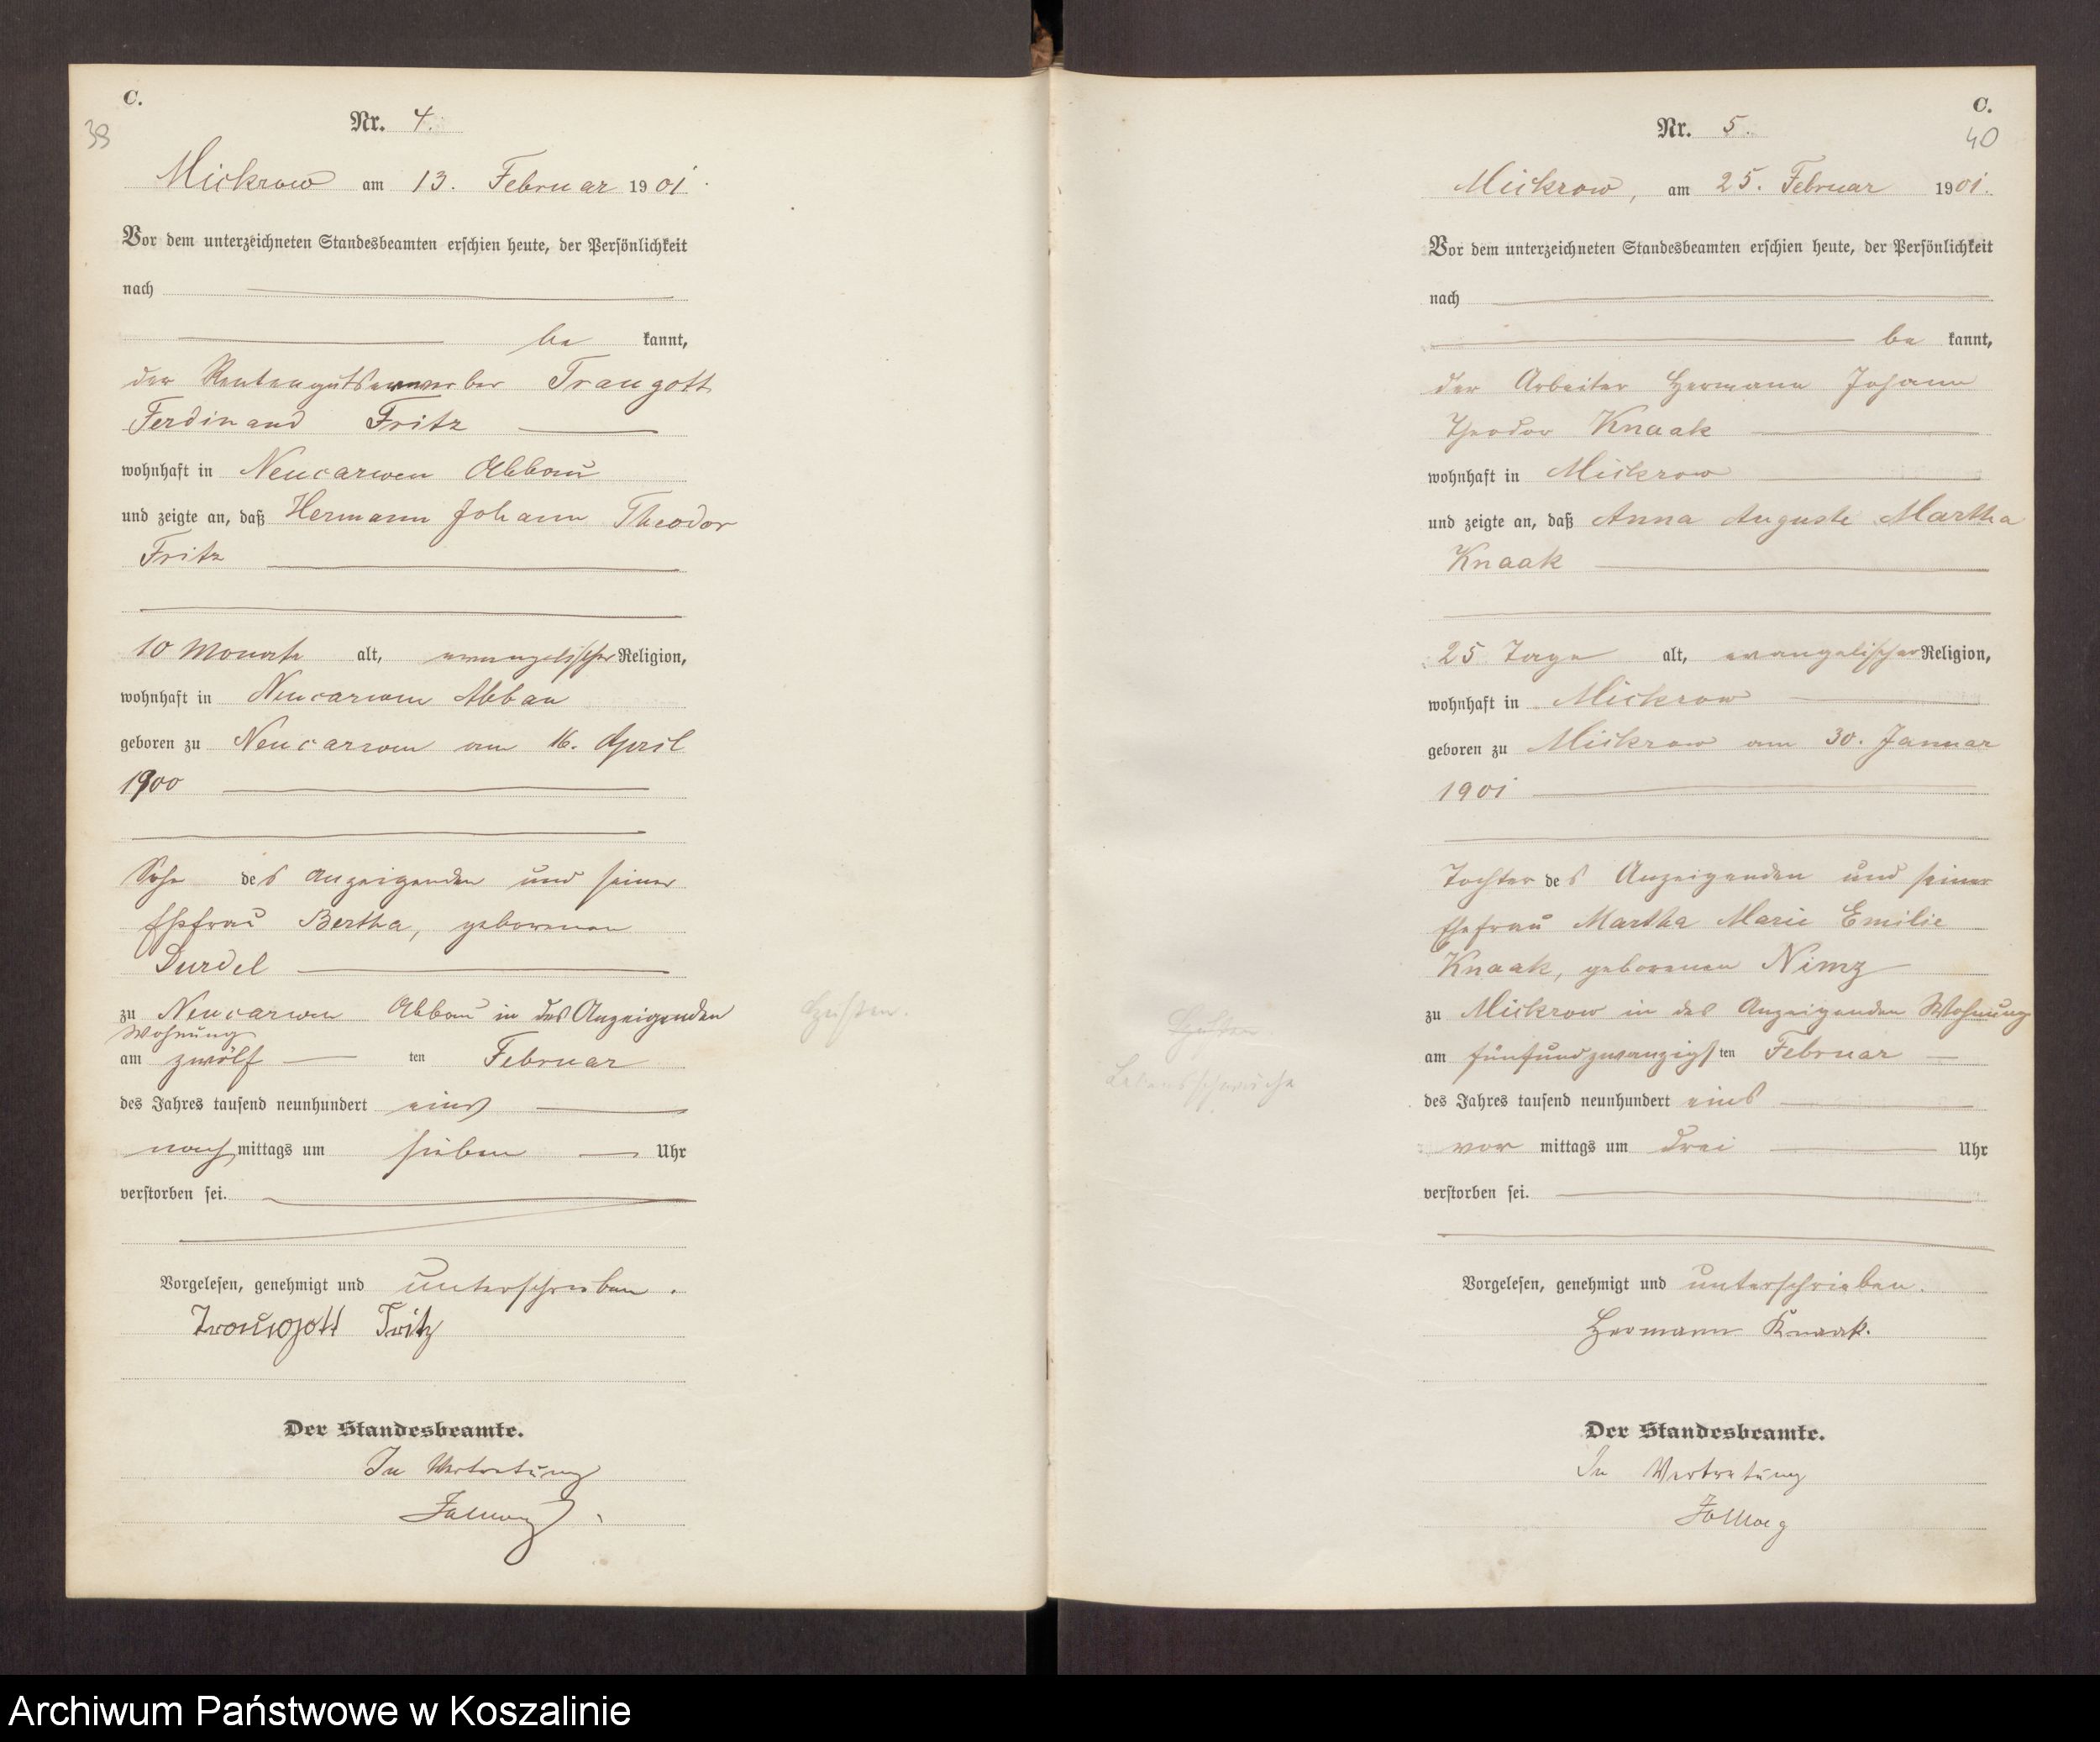 C.
39
Nr. 4.
Mickrow am 13. Februar 1901.
Vor dem unterzeichneten Standesbeamten erschien heute, der Persönlichkeit
nach
be kannt,
der Rentengutserwerber Traugott
Ferdinand Fritz
wohnhaft in Neucarwen Abbau
und zeigte an, daß Hermann Johann Theodor
Fritz
10 Monate alt, evangelischer Religion,
wohnhaft in Neucarwen Abbau
geboren zu Neucarwen am 16. April
1900
Sohn des Anzeigenden und seiner
Ehefrau Bertha, geborenen
Durdel
zu Neucarwen Abbau in des Anzeigenden
Wohnung
am zwölf ten Februar
des Jahres tausend neunhundert eins
nach mittags um sieben Uhr
verstorben sei.
Vorgelesen, genehmigt und unterschrieben.
Traugott Fritz
Der Standesbeamte.
In Vertretung
Husten.
C.
40
Nr. 5.
Mickrow, am 25. Februar 1901.
Vor dem unterzeichneten Standesbeamten erschien heute, der Persönlichkeit
nach
be kannt,
der Arbeiter Hermann Johann
Theodor Knaak
wohnhaft in Mickrow
und zeigte an, daß Anna Auguste Martha
Knaak
25 Tage alt, evangelischer Religion,
wohnhaft in Mickrow
geboren zu Mickrow am 30. Januar
1901
Tochter des Anzeigenden und seiner
Ehefrau Martha Marie Emilie
Knaak, geborenen Nimz
zu Mickrow in des Anzeigenden Wohnung
am fünfundzwanzigsten Februar
des Jahres tausend neunhundert eins
vor mittags um drei Uhr
verstorben sei.
Vorgelesen, genehmigt und unterschrieben.
Hermann Knaak.
Der Standesbeamte.
In Vertretung
Husten
Lebensschwäche
Archiwum Państwowe w Koszalinie